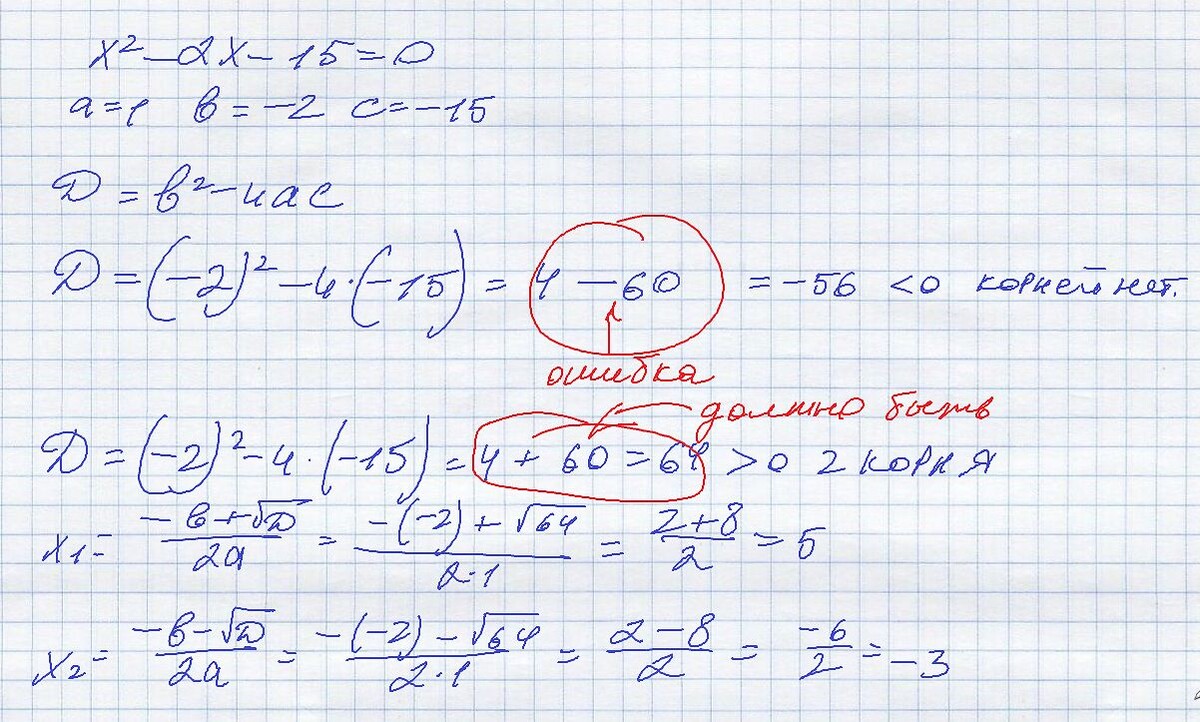 x² - 2x - 15 = 0
a = 1 в = -2 c = -15
D = в² - 4ac
D = (-2)² - 4·(-15) = 4 - 60 = -56 < 0 корней нет.
ошибка
должно быть
D = (-2)² - 4·(-15) = 4 + 60 = 64 > 0 2 корня
x1 = (-в + √D)/(2a) = (-(-2) + √64)/(2·1) = (2 + 8)/2 = 5
x2 = (-в - √D)/(2a) = (-(-2) - √64)/(2·1) = (2 - 8)/2 = -6/2 = -3